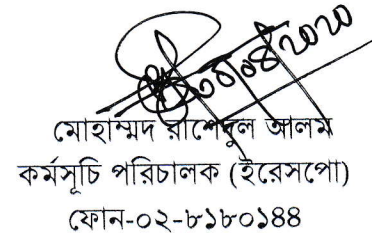 মোহাম্মদ রাশেদুল আলম
কর্মসূচি পরিচালক (ইরেসপো)
ফোন-০২-৮১৮০১৪৪